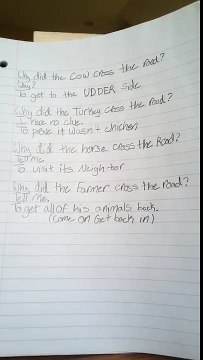 Why did the Cow cross the road?
Why?
To get to the UDDER side
Why did the Turkey cross the road?
I have no clue.
To prove it wasn't chicken
Why did the horse cross the Road?
Tell me.
To visit its Neigh-bor
Why did the farmer cross the Road?
Tell me.
To get all of his animals back.
(Come on Get back in)